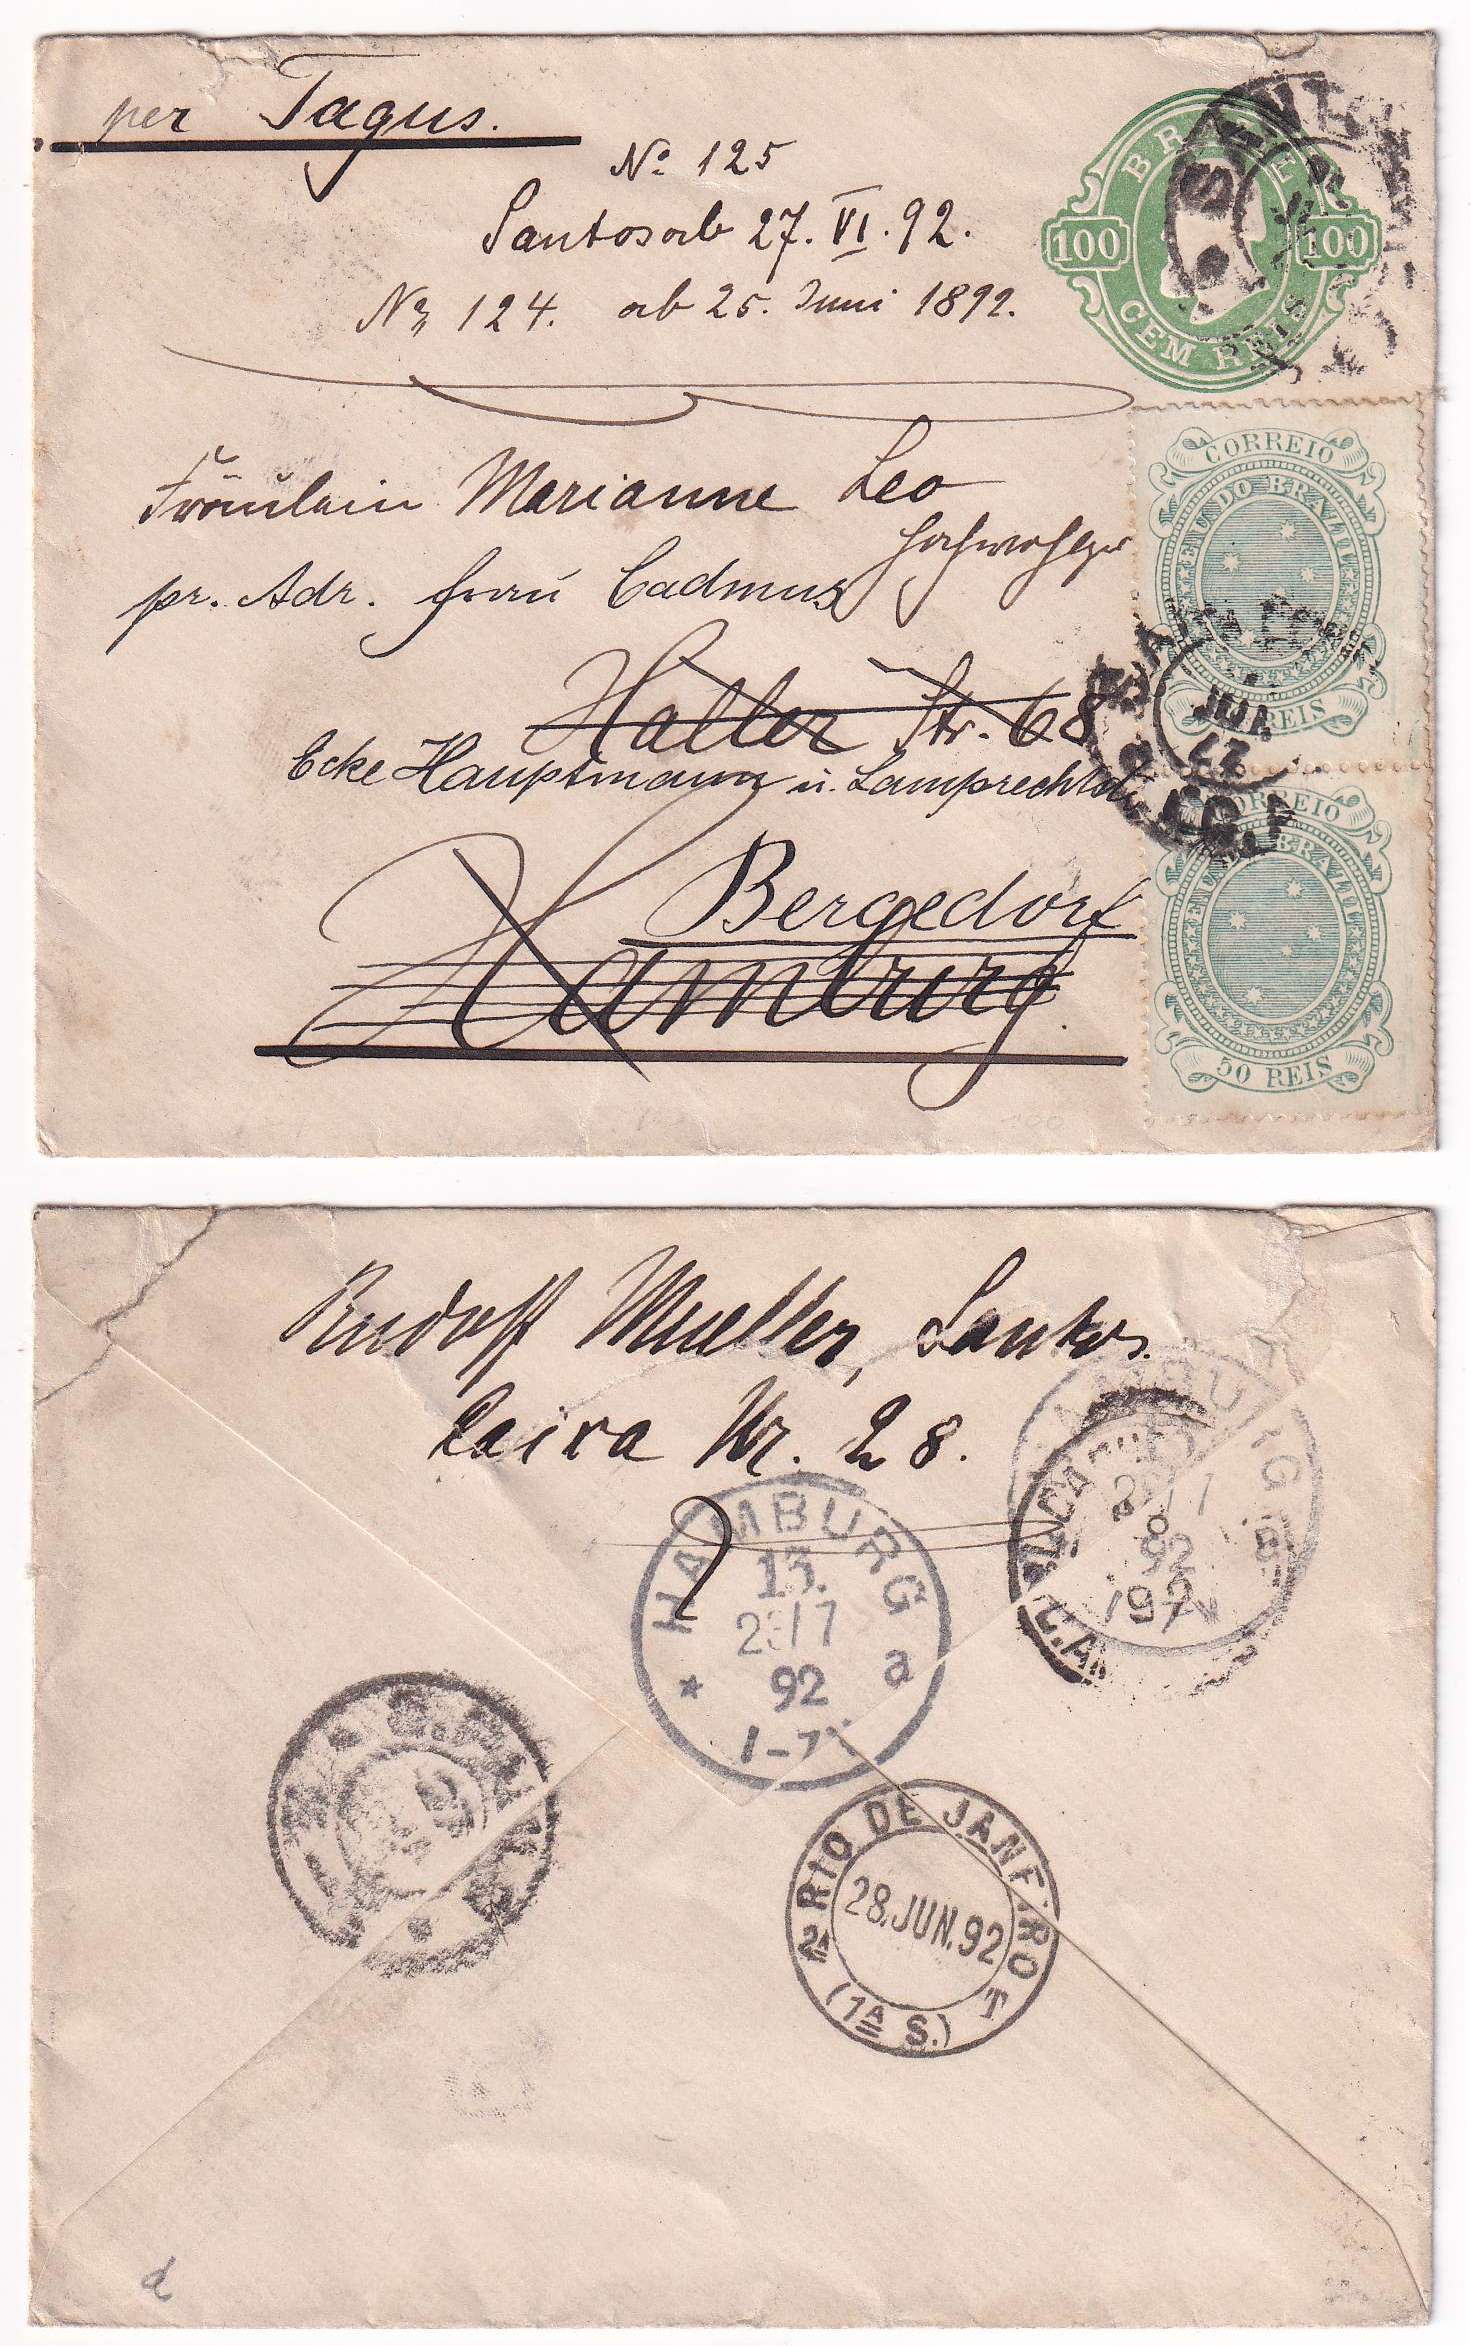 per Tagus.
No 125
Santos ab 27. VI. 92.
Nr 124. ab 25. Juni 1892.
BRAZIL
100 100
CEM REIS
Fräulein Marianne Leo
Hochwohlgeb
pr. Adr. Frau Cadmus
Haller Str. 68
Ecke Hauptmann u. Lamprechtstr.
Bergedorf
Hamburg.
CORREIO
E. U. DO BRAZIL
REIS
JUN
27
CORREIO
E. U. DO BRAZIL
50 REIS
Rudolf Mueller, Santos.
Caixa Nr. 28.
HAMBURG
92
HAMBURG
13.
7
92
* a
RIO DE JANEIRO
28.JUN.92
2A T
(1A S.)
d